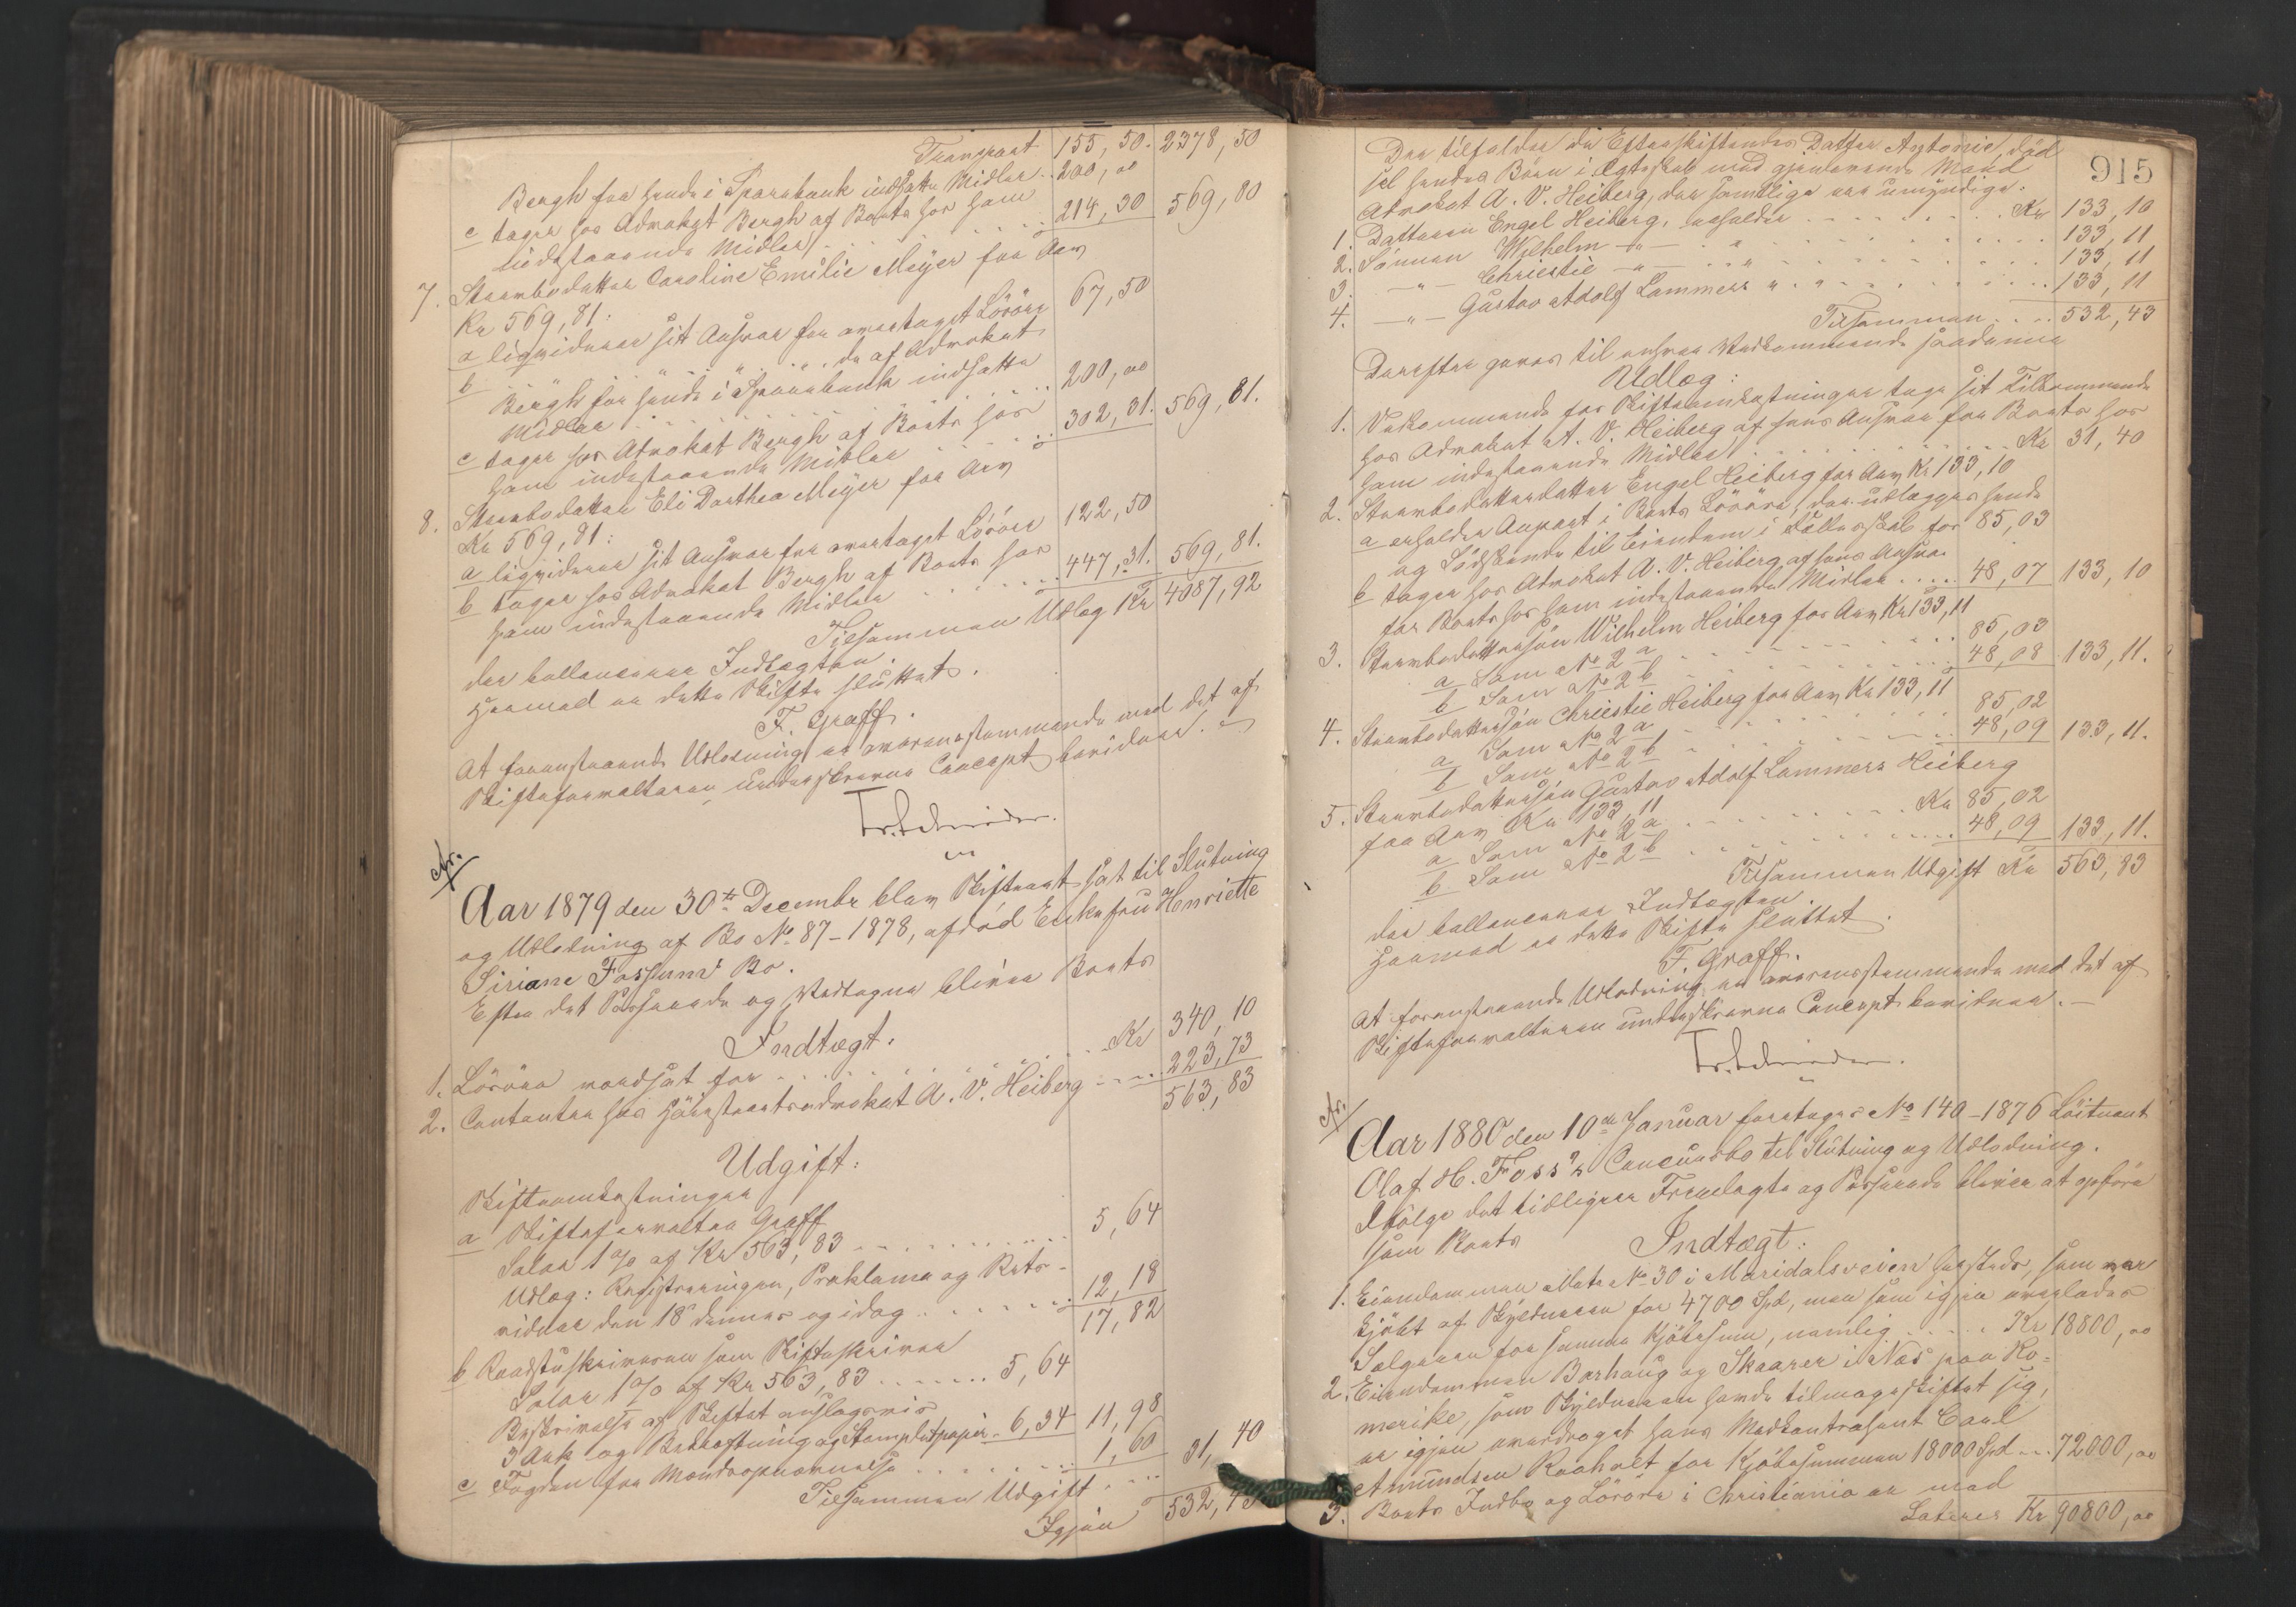 Transport 155,50. 2378,50
Bergh for hende i Sparebank indsatte Midler. 200,00
c tager hos Advokat Bergh af Boets hos ham
indestaaende Midler 214,30 569,80
7. Stervbodatter Caroline Emilie Meyer for Arv
Kr 569,81:
a liqviderer sit Ansvar for overtaget Lösöre 67,50
b " " " do af Advokat
Bergh for hende i Sparebank indsatte
Midler 200,00
c tager hos Advokat Bergh af Boets hos
ham indestaaende Midler 302,31. 569,81.
8. Stervbodatter Eli Dorthea Meyer for Arv
Kr 569,81:
a liqviderer sit Ansvar for overtaget Lösöre 122,50
b tager hos Advokat Bergh af Boets hos
ham indestaaende Midler 447,31. 569,81.
Tilsammen Udlæg Kr 4087,92
der ballancerer Indtægten.
Hermed er dette Skifte sluttet.
F. Graff.
At foranstaaende Udlodning er overensstemmende med det af
Skifteforvalteren underskrevne Concept bevidner.
Aar 1879 den 30te Decembr blev Skifteret sat til Slutning
og Udlodning af Bo No 87-1878, afdöd Enkefru Henriette
Siriane Fossums Bo.
Efter det Passerede og Vedtagne bliver Boets
Indtægt:
1. Lösöre værdsat for Kr 340,10
2. Contanter hos Höiesteretsadvokat A. V. Heiberg 223,73
563,83
Udgift:
Skifteomkostninger
a Skifteforvalter Graff
Salær 1% af Kr 563,83 5,64
Udlæg: Registreringen, Proklama og Rets-
vidner den 18 dennes og idag 12,18
17,82
b Raadstuskriveren som Skifteskriver
Salær 1% af Kr 563,83 5,64
Beskrivelse af Skiftet anslagsvis
3 Ark og Bekræftning og Stempletpapir 6,34 11,98
c Fogden for Mændsopnævnelse 1,60
Tilsammen Udgift 31,40
Igjen 532,43
915
Der tilfalder de Efterskiftendes Datter Antonie, död
sel hendes Börn i Egteskab med gjenlevende Mand
Advokat A. V. Heiberg, der samtlige ere umyndige.
1. Datteren Engel Heiberg, erholder Kr 133,10
2. Sönnen Wilhelm " " 133,11
3. " Christie " " 133,11
4. " Gustav Adolf Lammers " " 133,11
Tilsammen 532,43
Derefter gjöres til enhver Vedkommende saadanne
Udlæg:
1. Vedkommende for Skifteomkostninger tage sit Tilkommende
hos Advokat A. V. Heiberg af hans Ansvar for Boets hos
ham indestaaende Midler Kr 31,40
2. Stervbodatterdatter Engel Heiberg for Arv Kr 133,10
a erholder Anpart i Boets Lösöre, der udlægges hende
og Södskende til Eiendom i Fællesskab for 85,03
b tager hos Advokat A. V. Heiberg af hans Ansvar
for Boets hos ham indestaaende Midler 48,07 133,10
3. Stervbodattersön Wilhelm Heiberg for Arv Kr 133,11
a Som No 2 a 85,03
b Som No 2 b 48,08 133,11.
4. Stervbodattersön Christie Heiberg for Arv Kr 133,11
a Som No 2 a 85,02
b Som No 2 b 48,09 133,11.
5. Stervbodattersön Gustav Adolf Lammers Heiberg
for Arv Kr 133,11
a Som No 2 a Kr 85,02
b Som No 2 b 48,09 133,11.
Tilsammen Udgift Kr 563,83
der ballancerer Indtægten.
Hermed er dette Skifte sluttet.
F. Graff.
At foranstaaende Udlodning er overensstemmende med det af
Skifteforvalteren underskrevne Concept bevidner.
Aar 1880 den 10de Januar foretages No 140-1876 Löitnant
Olaf H. Foss's Concursbo til Slutning og Udlodning.
Ifölge det tidligere Fremlagte og Passerede bliver at opföre
som Boets
Indtægt:
1. Eiendommen Matr No 30 i Maridalsveien hersteds, som var
kjöbt af Skyldneren for 4700 Spd, men som igjen overlodes
Sælgeren for samme Kjöbesum, nemlig Kr 18800,00
2. Eiendommen Borhaug og Skaarer i Næs paa Ro-
merike, som Skyldneren havde tilmageskiftet sig,
er igjen overdraget hans Medkontrahent Carl
Amundsen Raaholt for Kjöbesummen 18000 Spd 72000,00
3. Boets Indbo og Lösöre i Christiania er med
Lateres Kr 90800,00